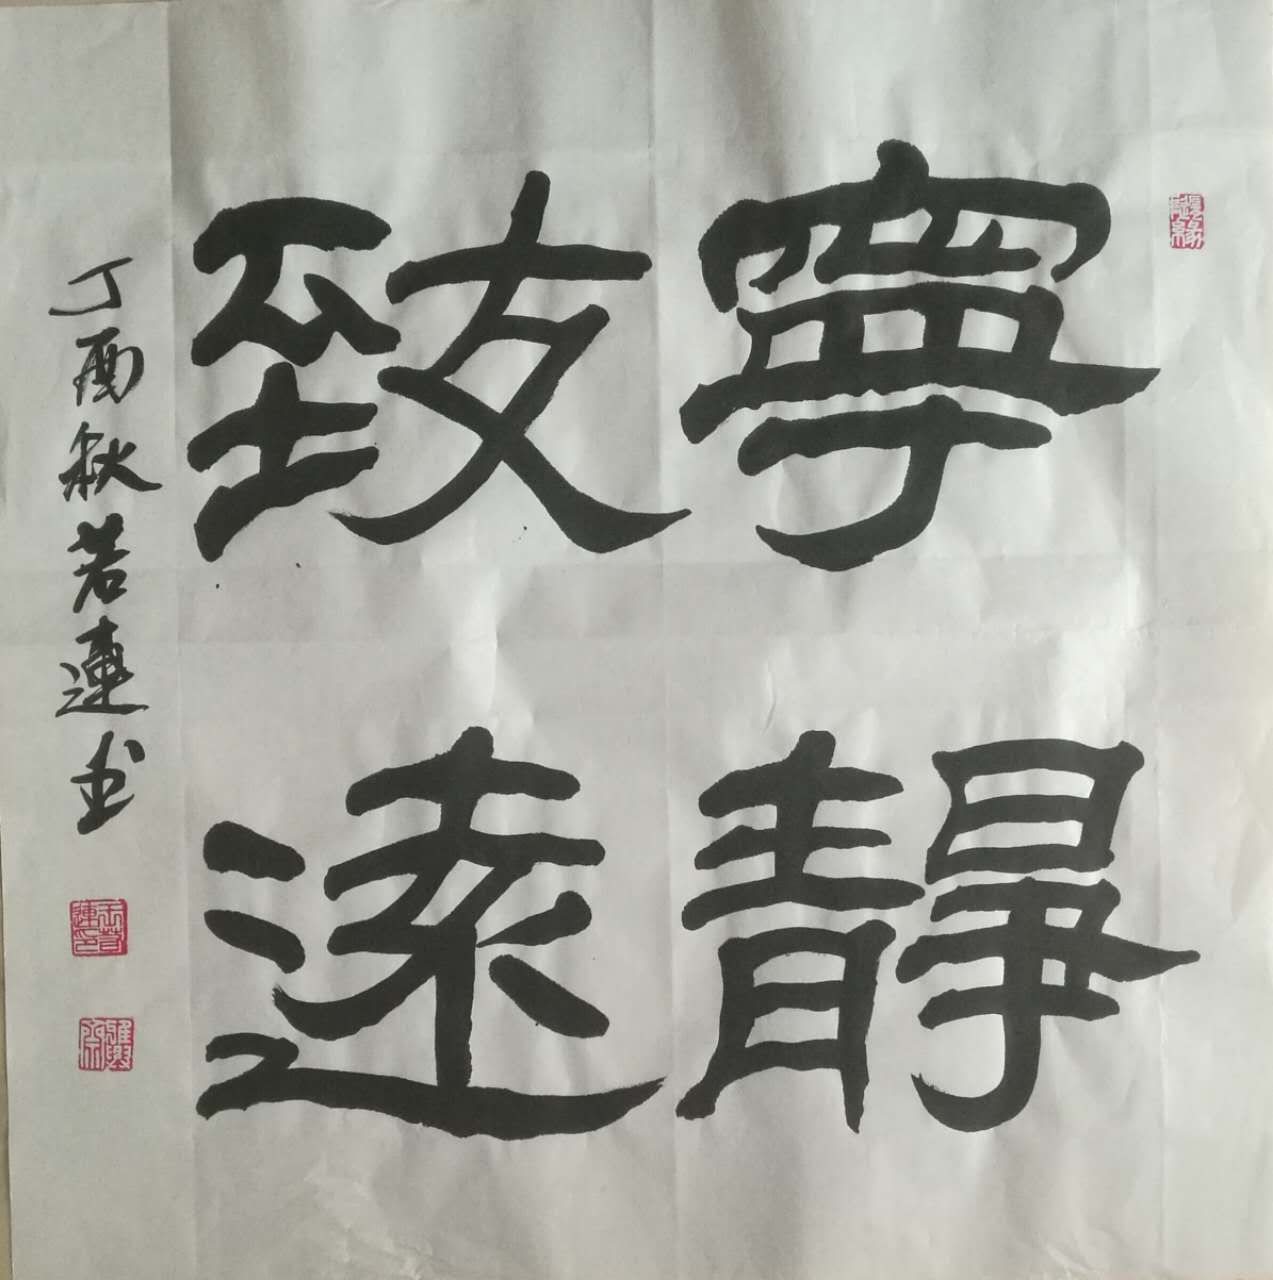 寧靜
致遠
丁酉秋若蓮书